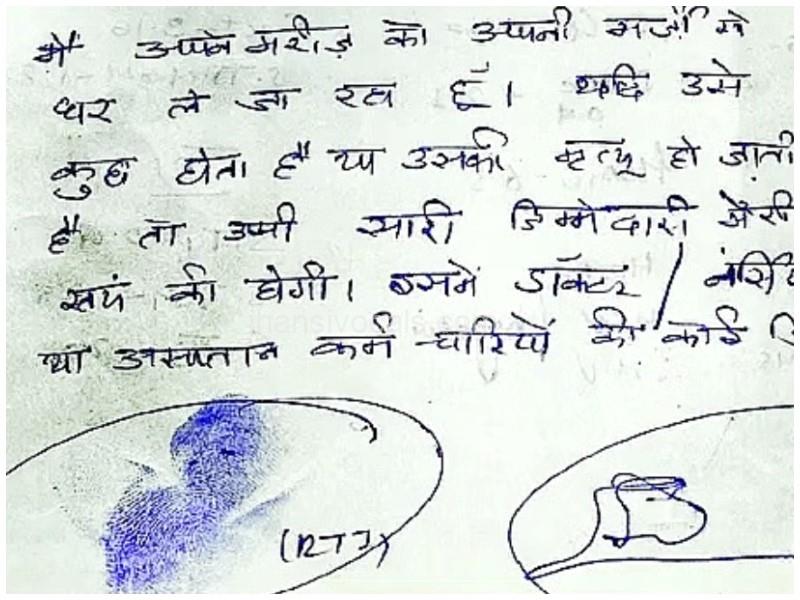 मैं अपने मरीज़ को अपनी मर्ज़ी से
घर ले जा रहा हूँ। यदि उसे
कुछ होता है या उसकी मृत्यू हो जाती
है तो उसकी सारी जिम्मेदारी मेरी
स्वयं की होगी। इसमें डॉक्टर / नर्सिं
या अस्पताल कर्मचारियों की कोई
(RTI)